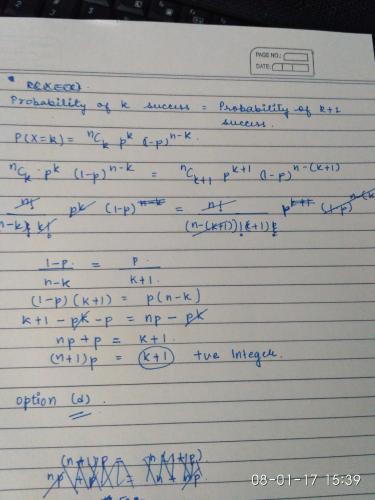 PAGE NO.:
DATE:
Probability of k success = Probability of k+1
success.
P(X=k) = ⁿCₖ pᵏ (1-p)ⁿ⁻ᵏ.
ⁿCₖ · pᵏ (1-p)ⁿ⁻ᵏ = ⁿCₖ₊₁ pᵏ⁺¹ (1-p)ⁿ⁻⁽ᵏ⁺¹⁾
n! / (n-k)! k! pᵏ (1-p)ⁿ⁻ᵏ = n! / (n-(k+1))! (k+1)! pᵏ⁺¹ (1-p)
(1-p) / (n-k) = p / (k+1).
(1-p) (k+1) = p(n-k)
k+1 - pk - p = np - pk
np + p = k+1.
(n+1)p = (k+1) +ve Integer.
option (d).
08-01-17 15:39